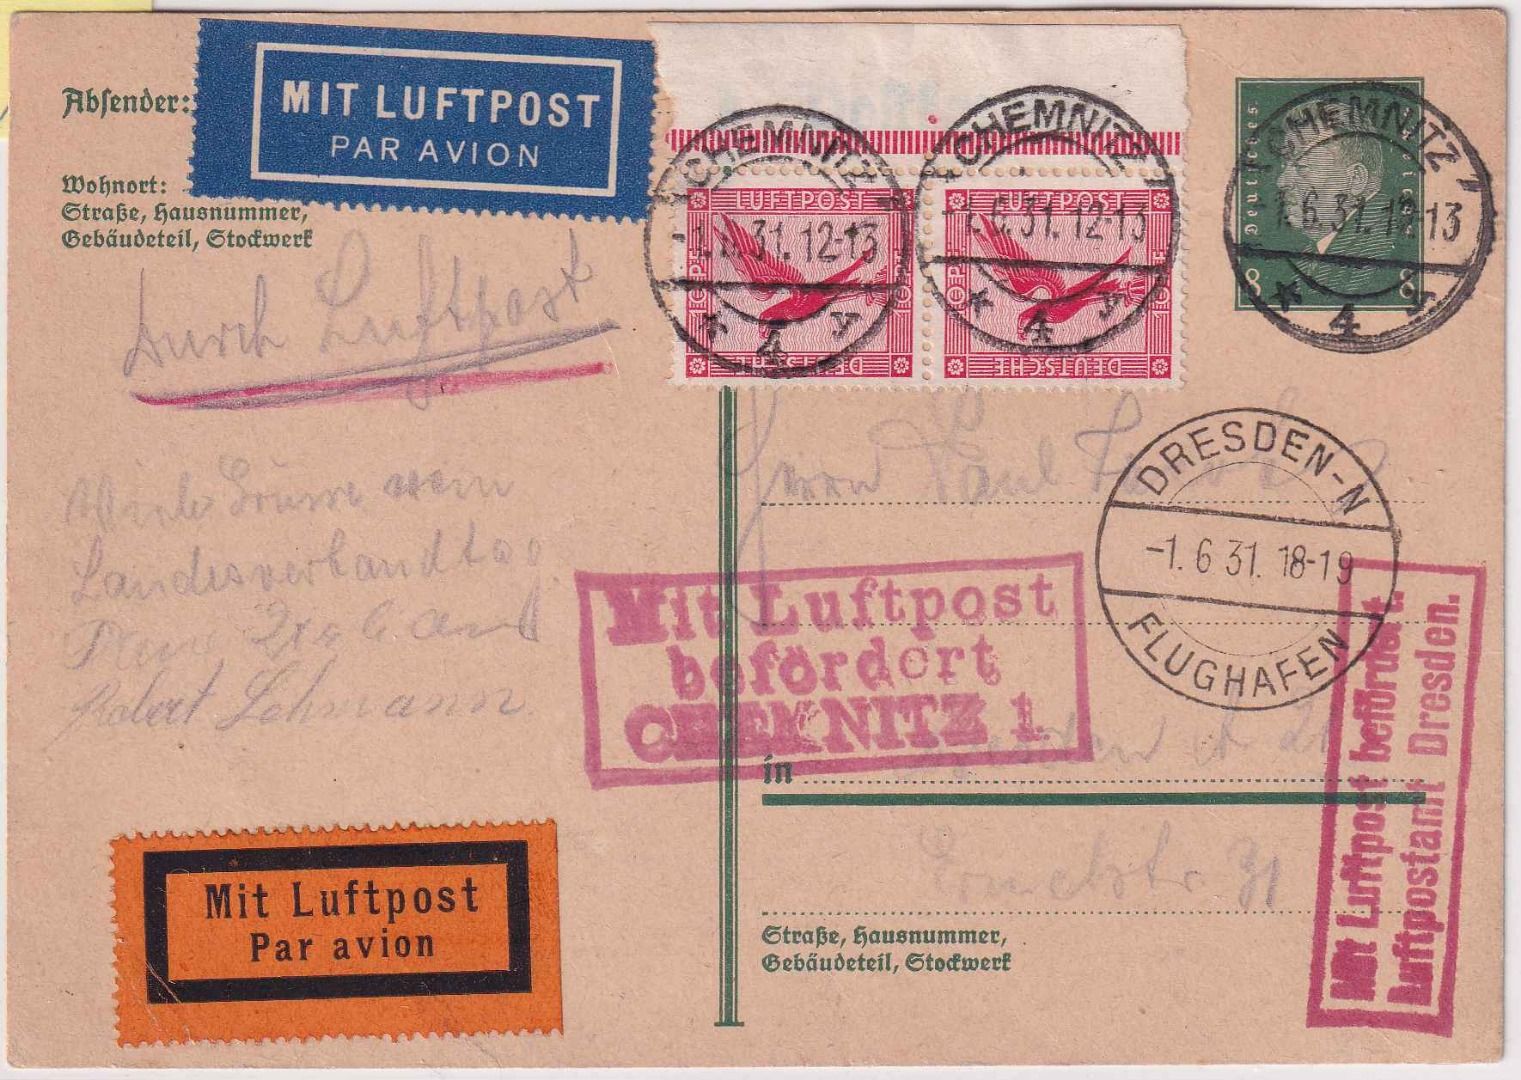 Absender:
MIT LUFTPOST
PAR AVION
Wohnort:
Straße, Hausnummer,
Gebäudeteil, Stockwerk
LUFTPOST
LUFTPOST
DEUTSCHE
DEUTSCHE
CHEMNITZ
-1.6.31.12-13
* 4
CHEMNITZ
-1.6.31.12-13
* 4
Deutsches
8
8
CHEMNITZ
-1.6.31.12-13
* 4
Durch Luftpost
Herrn Paul
DRESDEN-N
-1.6.31.18-19
FLUGHAFEN
Viele Grüsse vom
Landesverbandtag
Robert Lehmann
Mit Luftpost
befördert
CHEMNITZ 1.
in
Dresden A 21
31
Straße, Hausnummer,
Gebäudeteil, Stockwerk
Mit Luftpost
Par avion
Mit Luftpost befördert.
Luftpostamt Dresden.